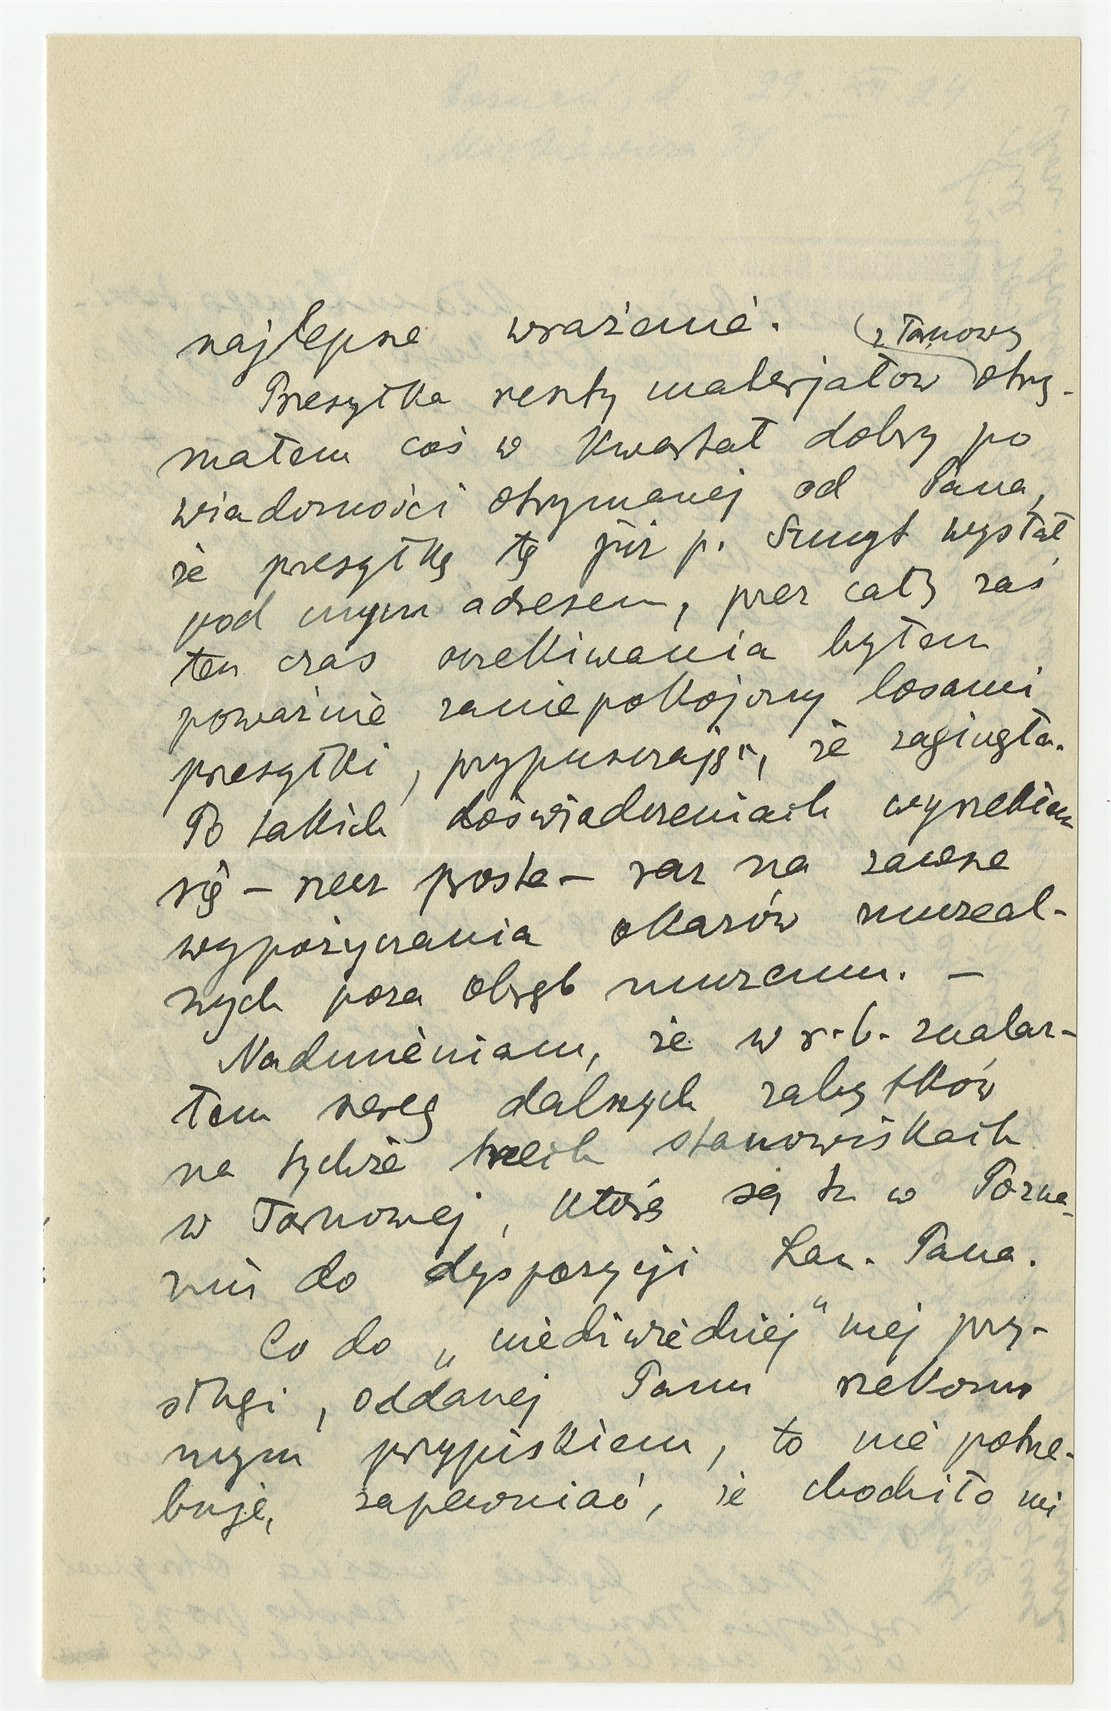 najlepsze wrażenie.
z Tarnowy
Przesyłkę reszty materjałów otrzy-
małem coś w kwartał dobry po
wiadomości otrzymanej od Pana,
że przesyłkę tę już p. Szmyt wysłał
pod mym adresem, przez cały zaś
ten czas oczekiwania byłem
poważnie zaniepokojony losami
przesyłki, przypuszczając, że zaginęła.
Po takich doświadczeniach wyrzekłem
się – rzecz prosta – raz na zawsze
wypożyczania okazów muzeal-
nych poza obręb muzeum. –
Nadmieniam, że w r. b. znalaz-
łem szereg dalszych zabytków
na tychże trzech stanowiskach
w Tarnowej, które są tu w Pozna-
niu do dyspozycji Łask. Pana.
Co do „niedźwiedziej" mej przy-
sługi, oddanej Panu rzekomo
mym przypiskiem, to nie potrze-
buję, zapewniać, że chodziło mi